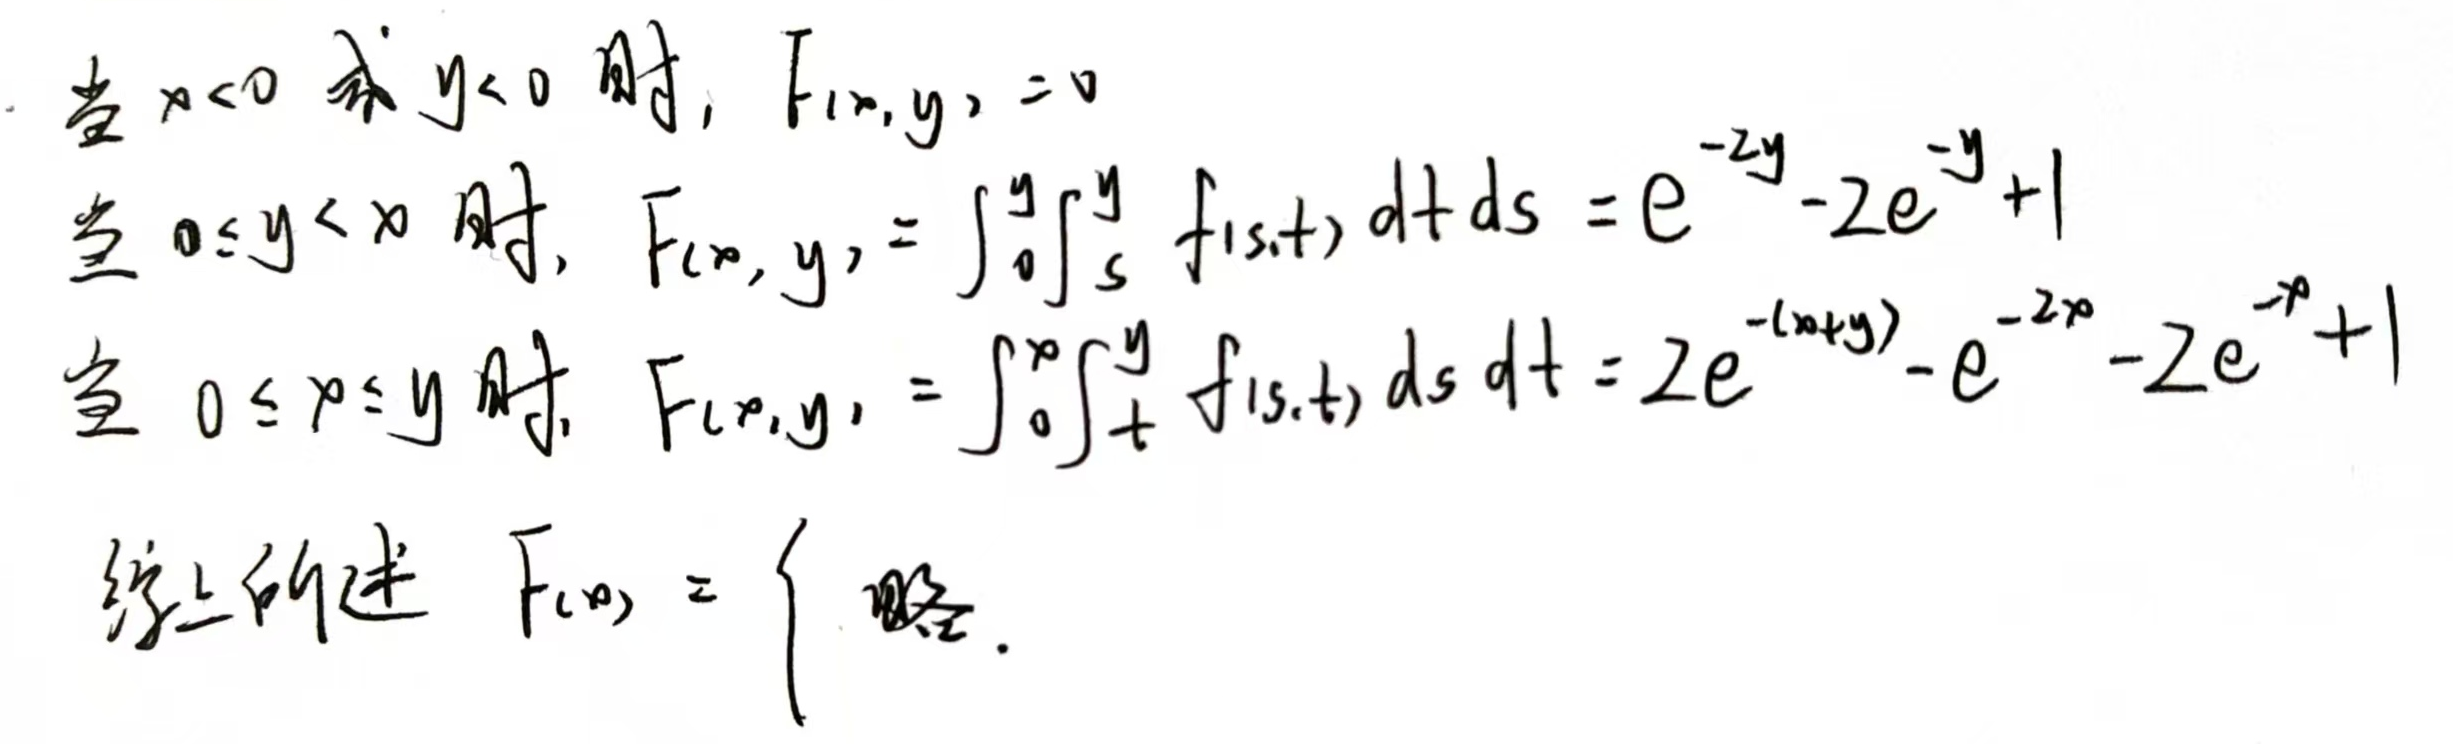 当 x<0 或 y<0 时, F(x,y)=0
当 0≤y<x 时, F(x,y)=∫₀^y∫ₛ^y f(s,t) dt ds = e^{-2y}-2e^{-y}+1
当 0≤x≤y 时, F(x,y)=∫₀^x∫ₜ^y f(s,t) ds dt = 2e^{-(x+y)}-e^{-2x}-2e^{-x}+1
综上所述 F(x)={ 略.